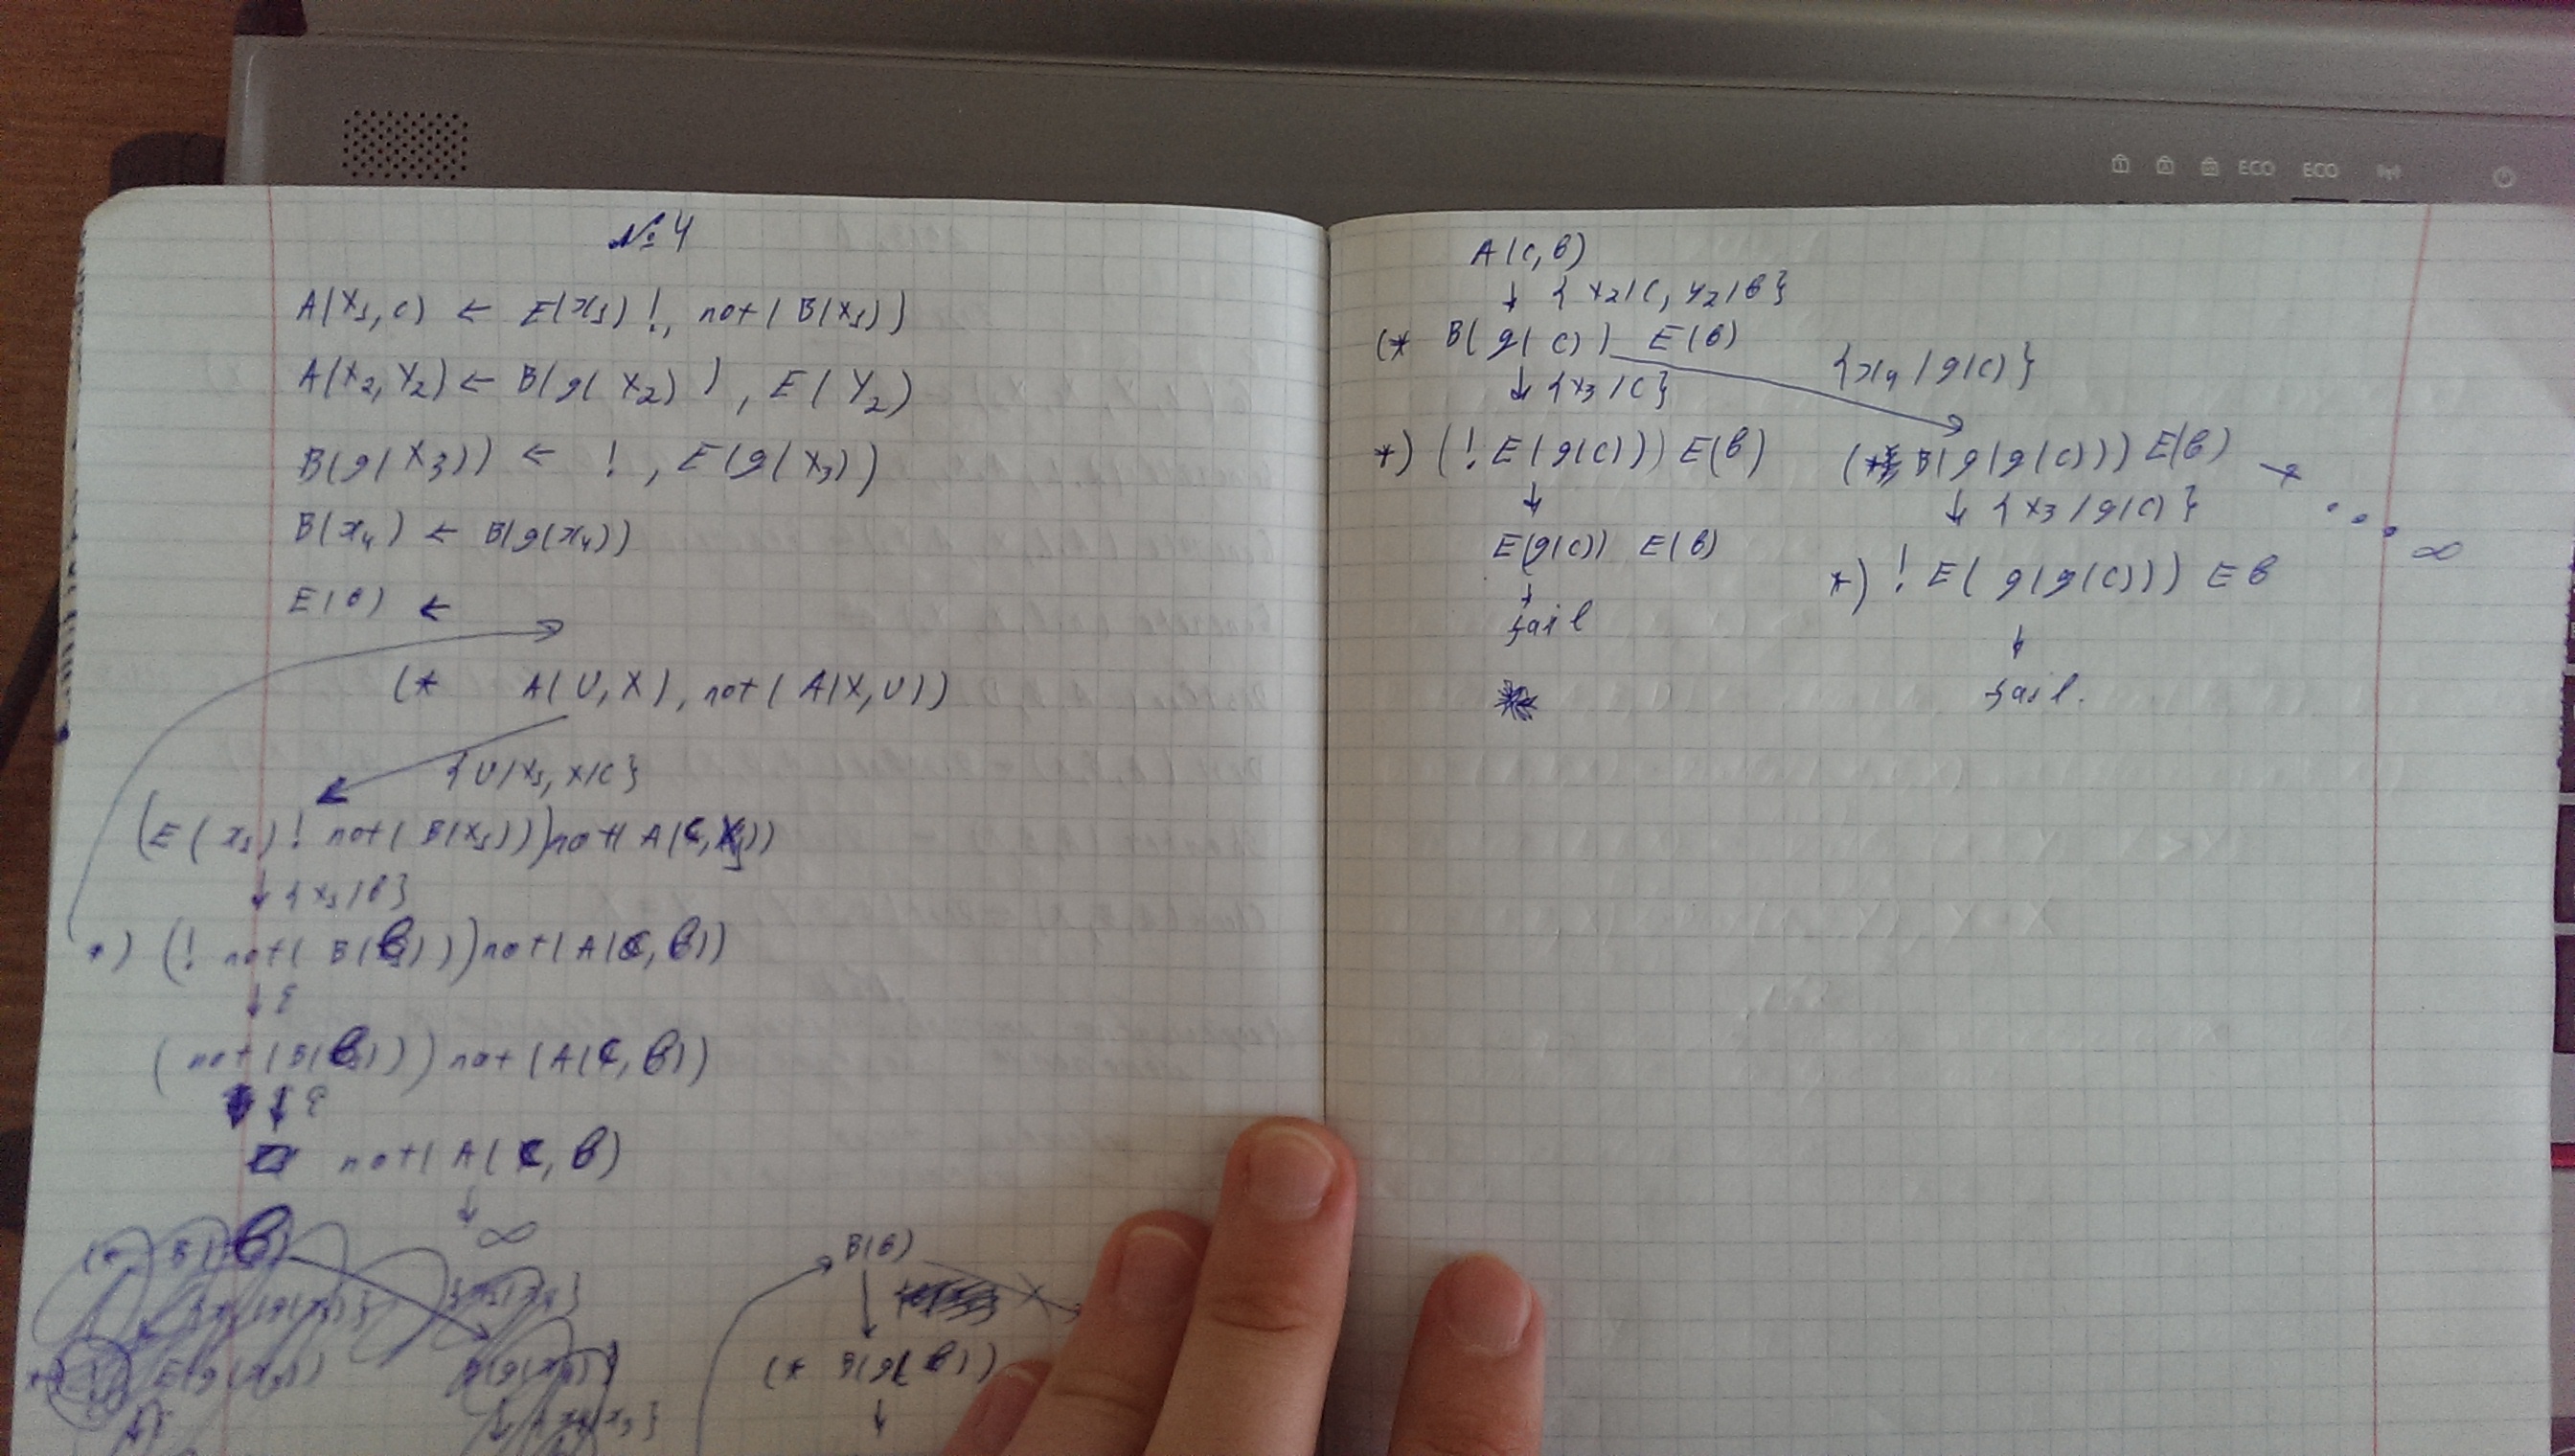 № 4
A(X₁, c) ← E(x₁) !, not( B(X₁))
A(X₂, Y₂) ← B(g( X₂) ) , E( Y₂)
B(g(X₃)) ← ! , E(g(X₃))
B(x₄) ← B(g(x₄))
E(в) ←
(* A(U, X), not( A(X, U))
{U/X₁, X/C}
(E( x₁) ! not( B(X₁))) not( A(C, X₁))
↓ {X₁/в}
*) (! not( B(в))) not( A(C, в))
↓ ε
( not( B(в))) not (A(C, в))
↓ ε
not( A( C, в)
↓
∞
B(в)
↓
(* B(g( в))
↓
A(C, в)
↓ { X₂/C, Y₂/в}
(* B( g( C) ) E(в)
↓ {X₃/C}
{x₄ / g(C)}
*) (! E( g(C))) E(в)
(* B( g(g(C))) E(в) → ... ∞
↓
↓ {X₃/g(C)}
E(g(C)) E(в)
*) ! E( g(g(C))) E в
↓
fail
↓
fail.
ECO ECO